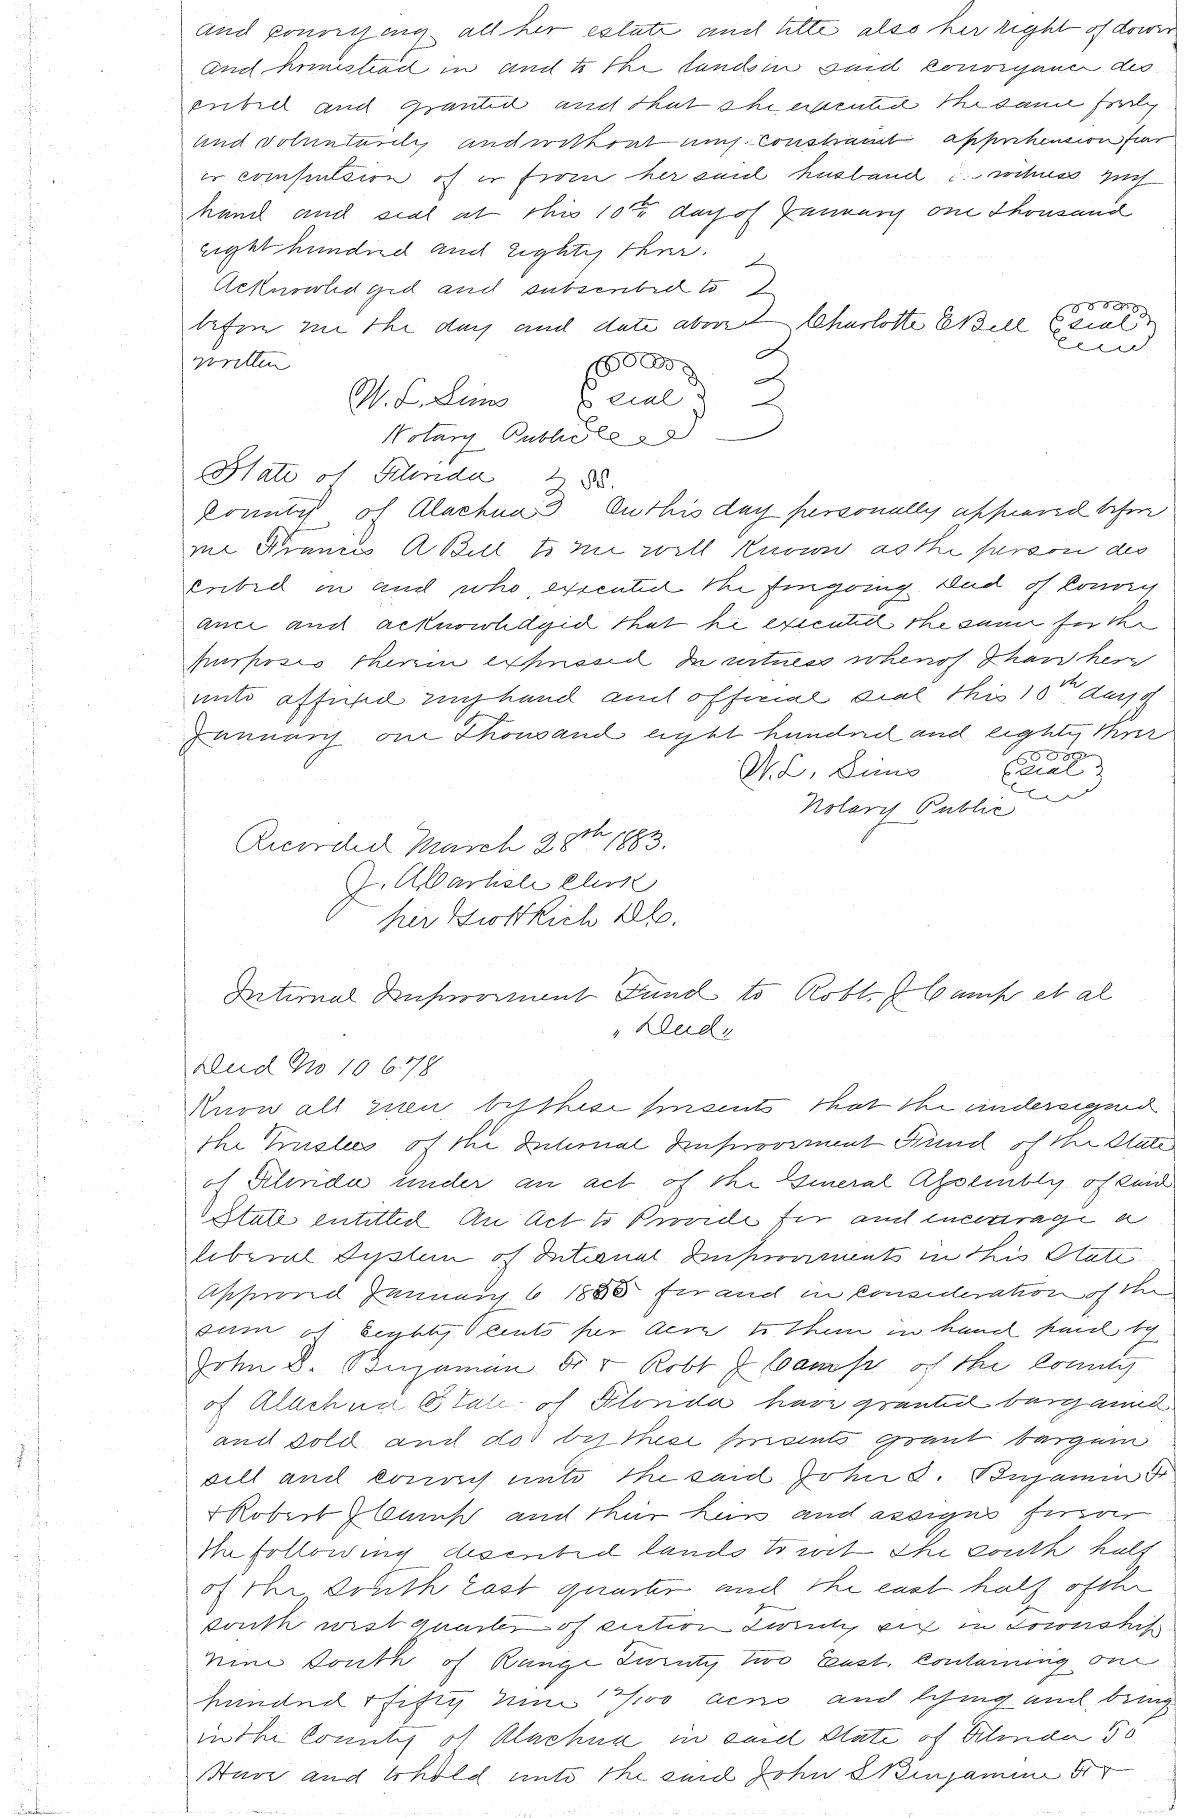 and conveying all her estate and title also her right of dower
and homestead in and to the lands in said conveyance des
cribed and granted and that she executed the same freely
and voluntarily and without any constraint apprehension fear
or compulsion of or from her said husband witness my
hand and seal at this 10th day of January one thousand
eight hundred and eighty three.
Acknowledged and subscribed to
before me the day and date above Charlotte E Bell seal
written
W. L. Sims seal
Notary Public
State of Florida } SS.
County of Alachua } On this day personally appeared before
me Francis A Bell to me well known as the person des
cribed in and who executed the foregoing Deed of Convey
ance and acknowledged that he executed the same for the
purposes therein expressed In witness whereof I have here
unto affixed my hand and official seal this 10th day of
January one Thousand eight hundred and eighty three
W. L. Sims seal
Notary Public
Recorded March 28th 1883.
J. A Carlisle Clerk
per DC.
Internal Improvement Fund to Robt. J Camp et al
"Deed"
Deed No 10678
Know all men by these presents that the undersigned
the Trustees of the Internal Improvement Fund of the State
of Florida under an act of the General Assembly of said
State entitled An Act to Provide for and encourage a
liberal System of Internal Improvements in this State
Approved January 6 1855 for and in consideration of the
sum of Eighty cents per Acre to them in hand paid by
John S. Benjamin Jr & Robt J Camp of the County
of Alachua State of Florida have granted bargained
and sold and do by these presents grant bargain
sell and convey unto the said John S. Benjamin Jr
& Robert J Camp and their heirs and assigns forever
the following described lands to wit The south half
of the South East quarter and the east half of the
south west quarter of section Twenty six in Township
Nine South of Range Twenty two East. Containing one
hundred & fifty nine 12/100 acres and lying and being
in the County of Alachua in said State of Florida To
Have and to hold unto the said John S Benjamine Jr &